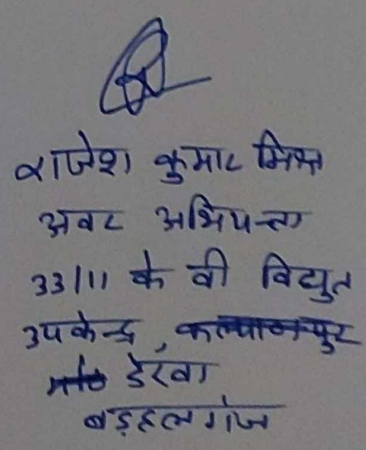 राजेश कुमार मिश्र
अवर अभियन्ता
33/11 के वी विद्युत
उपकेन्द्र, कल्यानपुर
डेरवा
बड़हलगंज